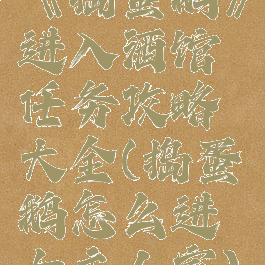 《捣蛋鹅》
进入酒馆
任务攻略
大全(捣蛋
鹅怎么进